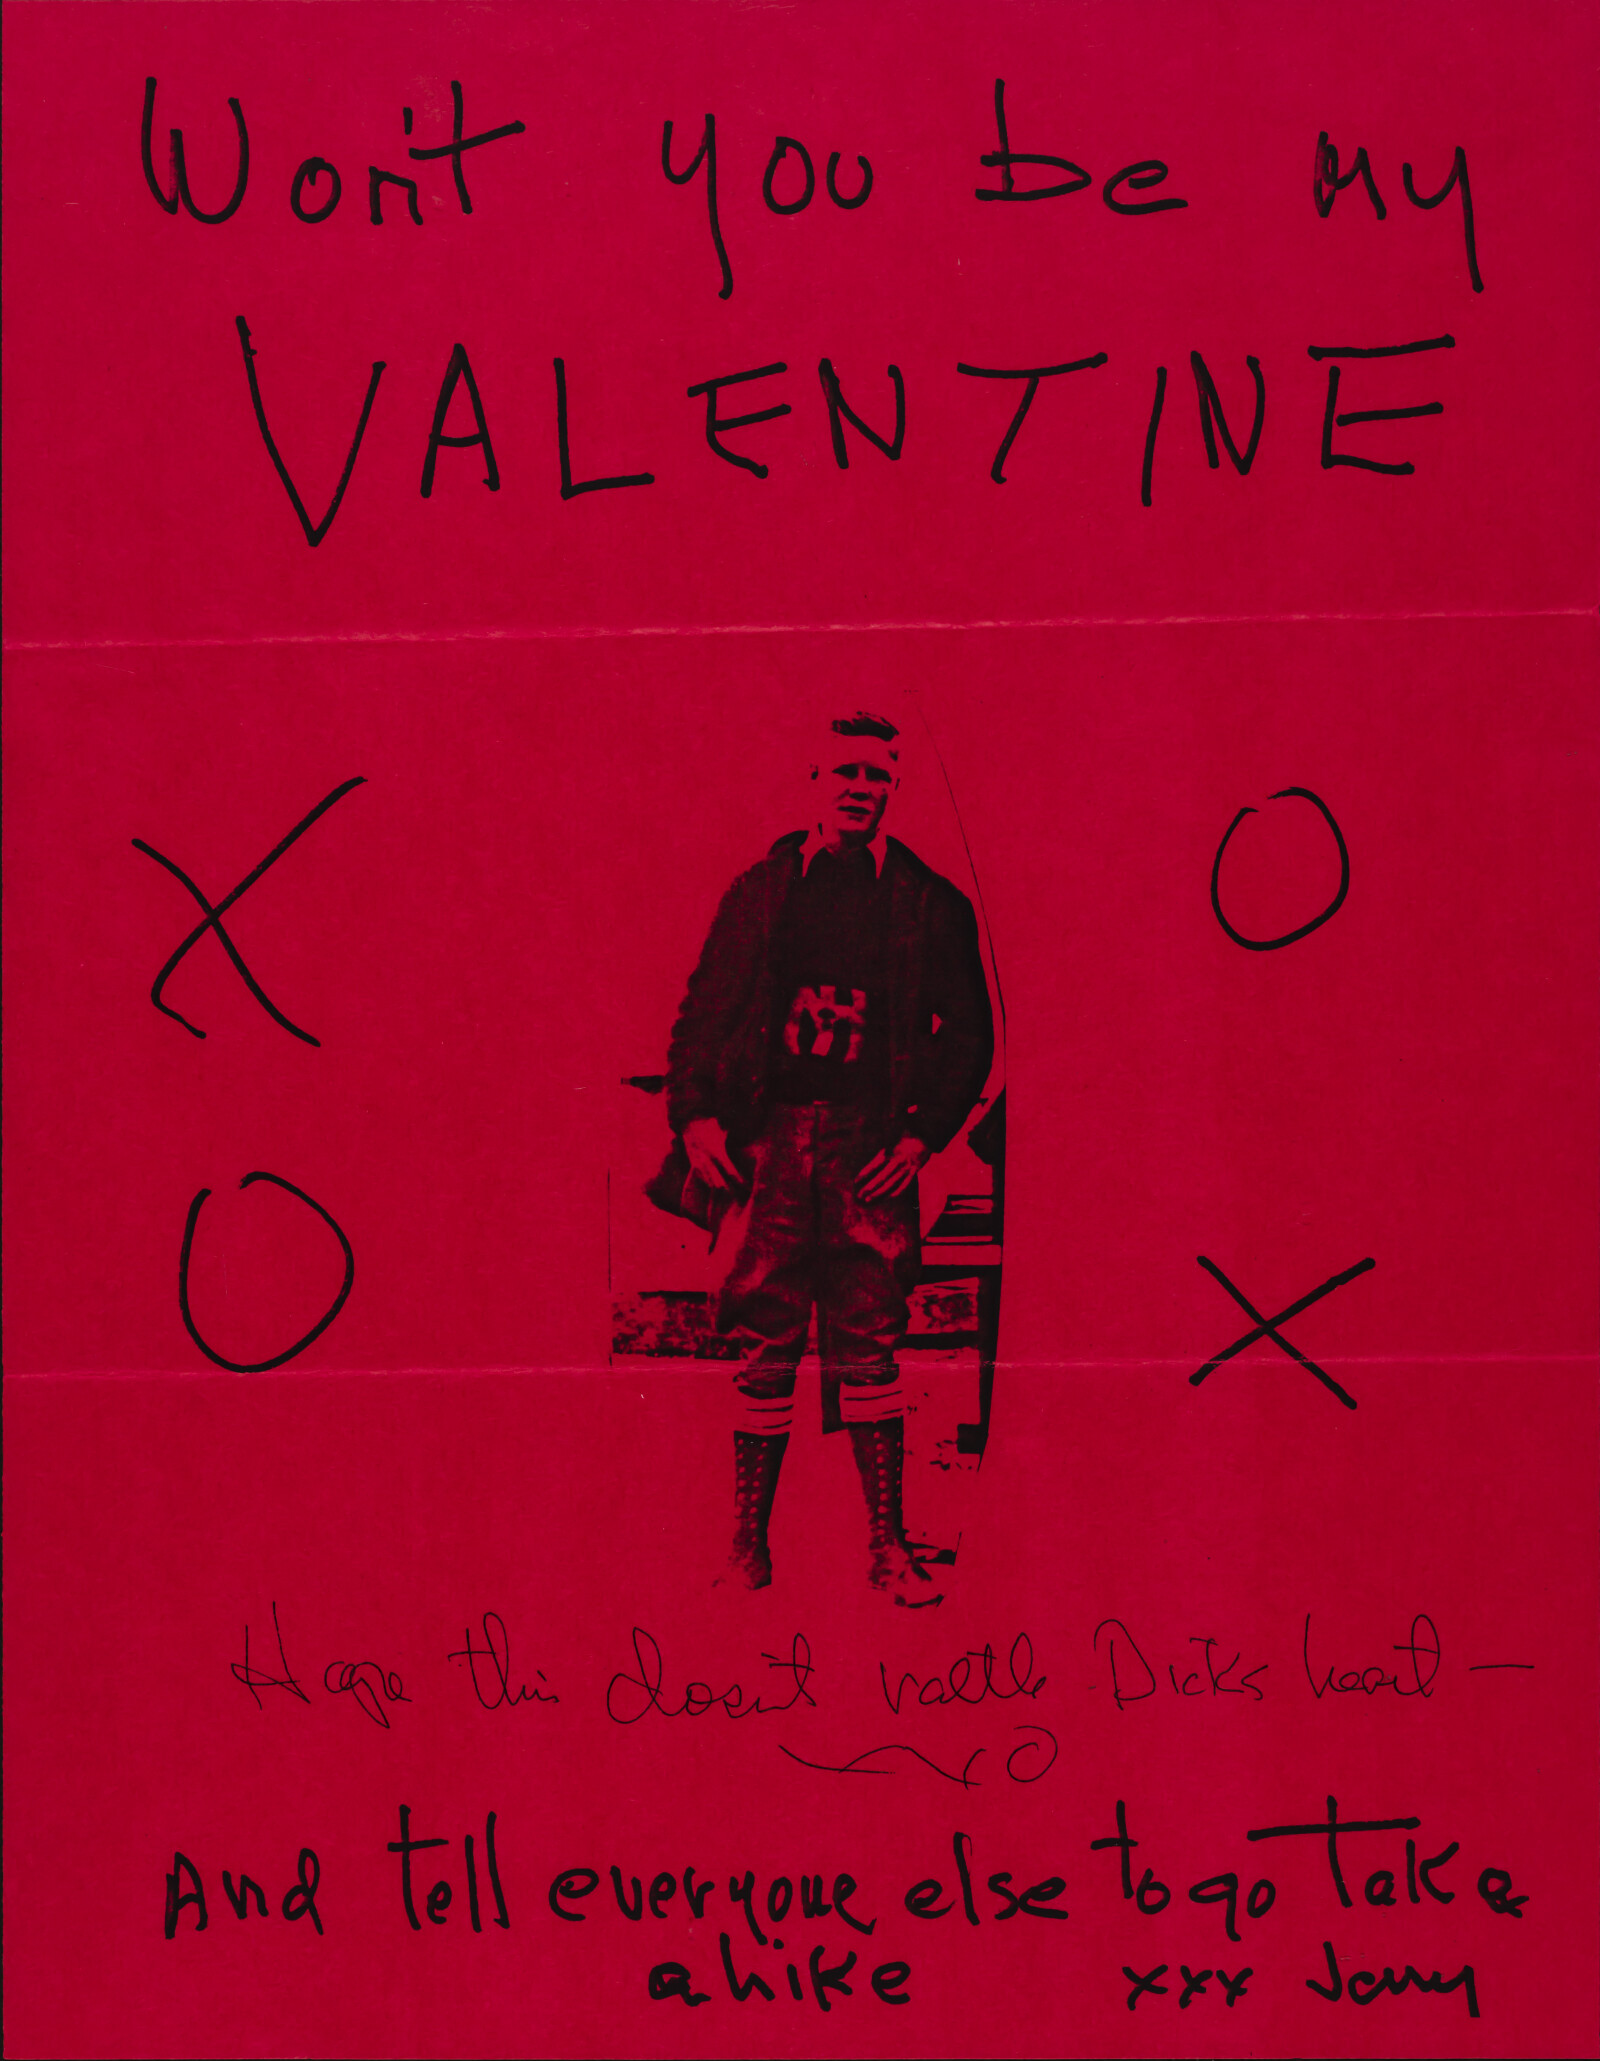 Won't you be my
VALENTINE
X O
O X
Hope this dosn't rattle Dicks heart —
XO
And tell everyone else to go Take
a hike xxx Jerry